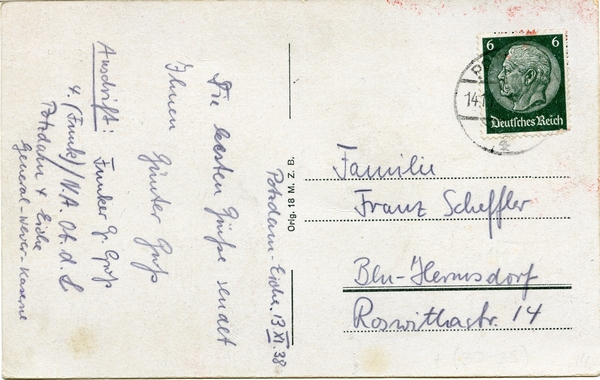 Potsdam-Eiche. 13.XI.38
Die besten Grüße sendet
Ihnen
Günter Groß
Anschrift: Funker G. Groß
4. (Funk)/N.A. Ob. d. L
Potsdam 4 Eiche
General-Wever-Kaserne
Orig. 18 M. Z. B.
6 6
Deutsches Reich
14.1
Familie
Franz Scheffler
Bln-Hermsdorf
Roswithastr. 14